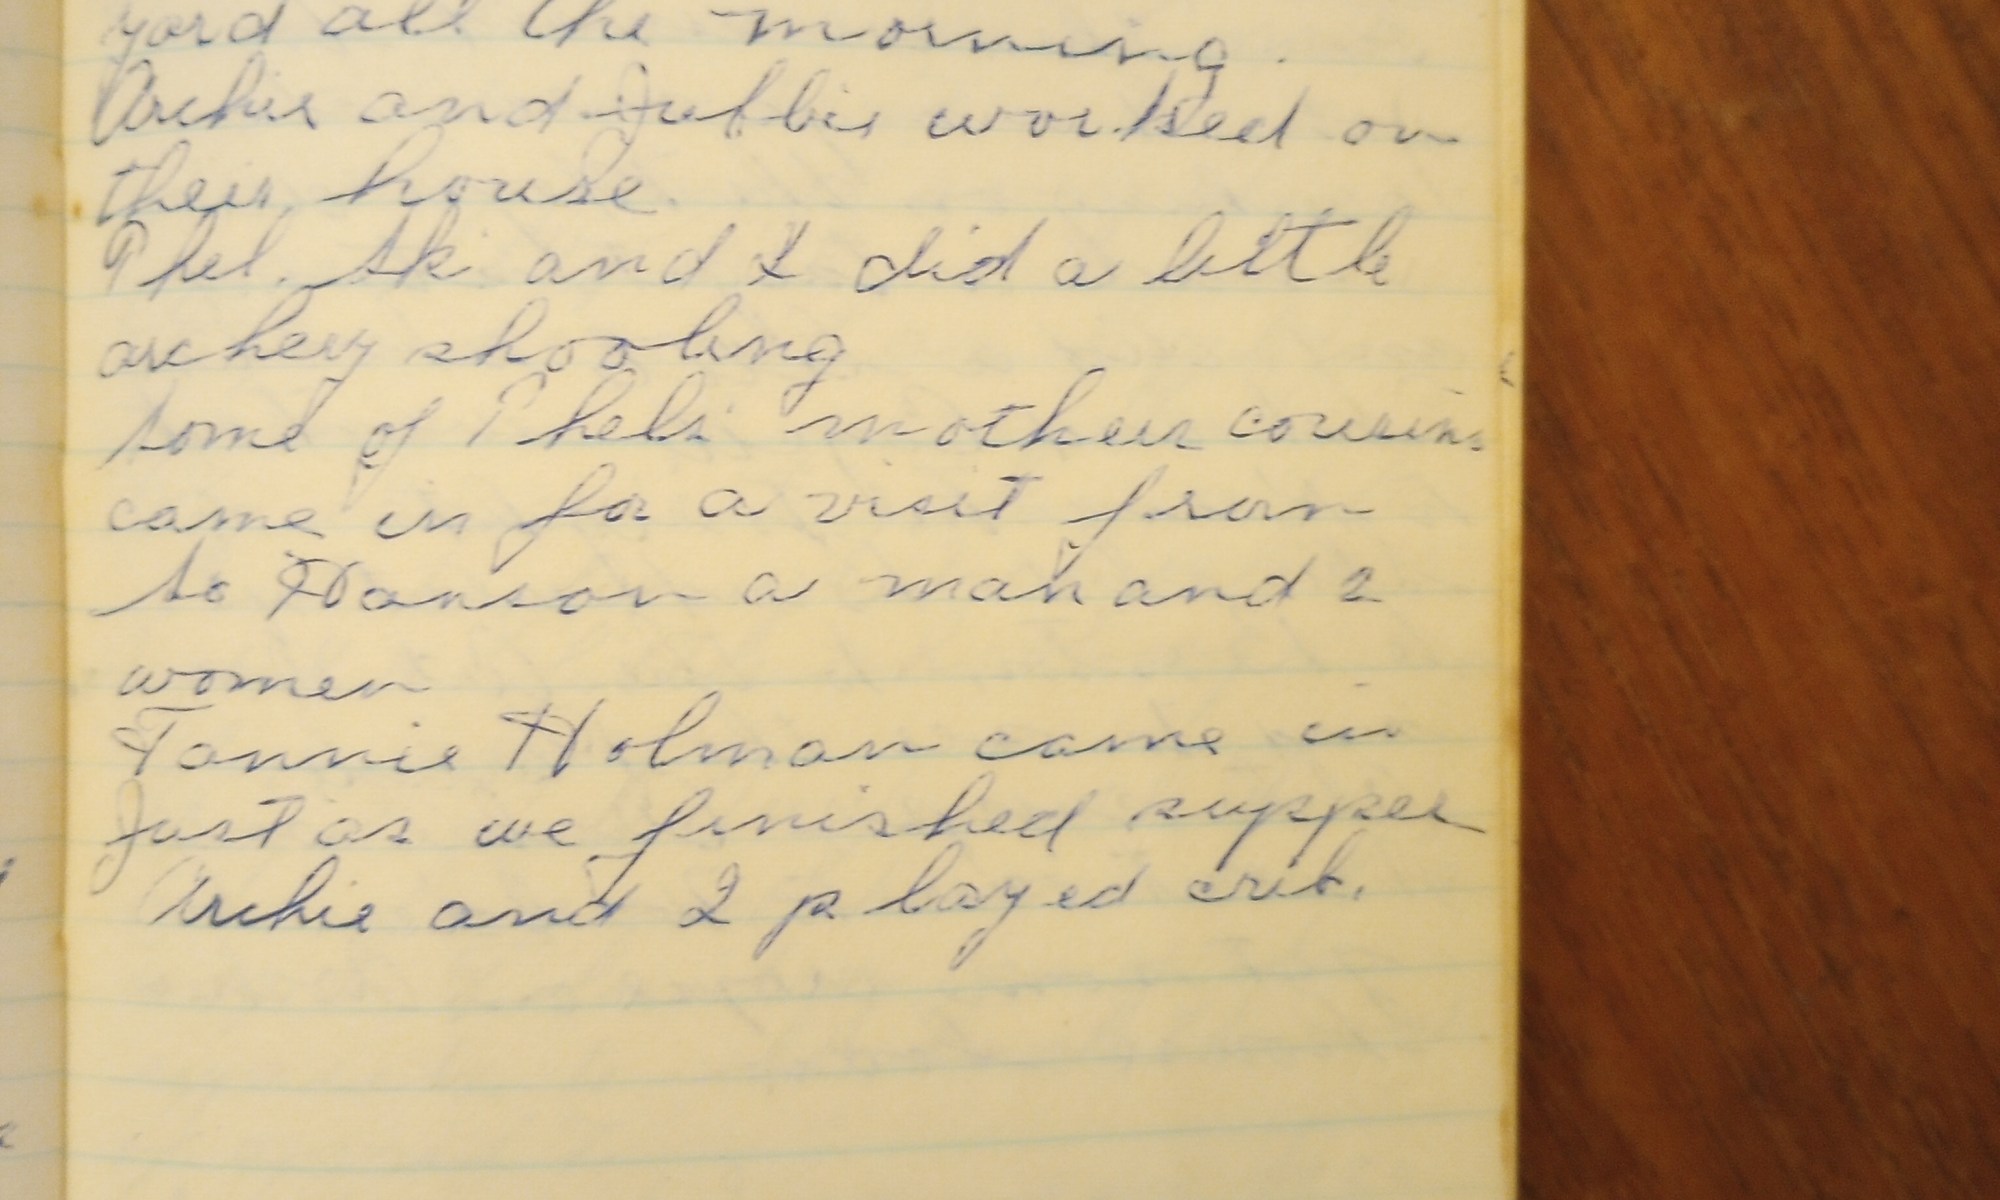 yard all the morning.
Archie and worked on
their house.
Phel. Sk and I did a little
archery shooting
some of Phels mothers cousins
came in for a visit from
So Hanson a man and 2
women
Fannie Holman came in
just as we finished supper
Archie and I played crib.